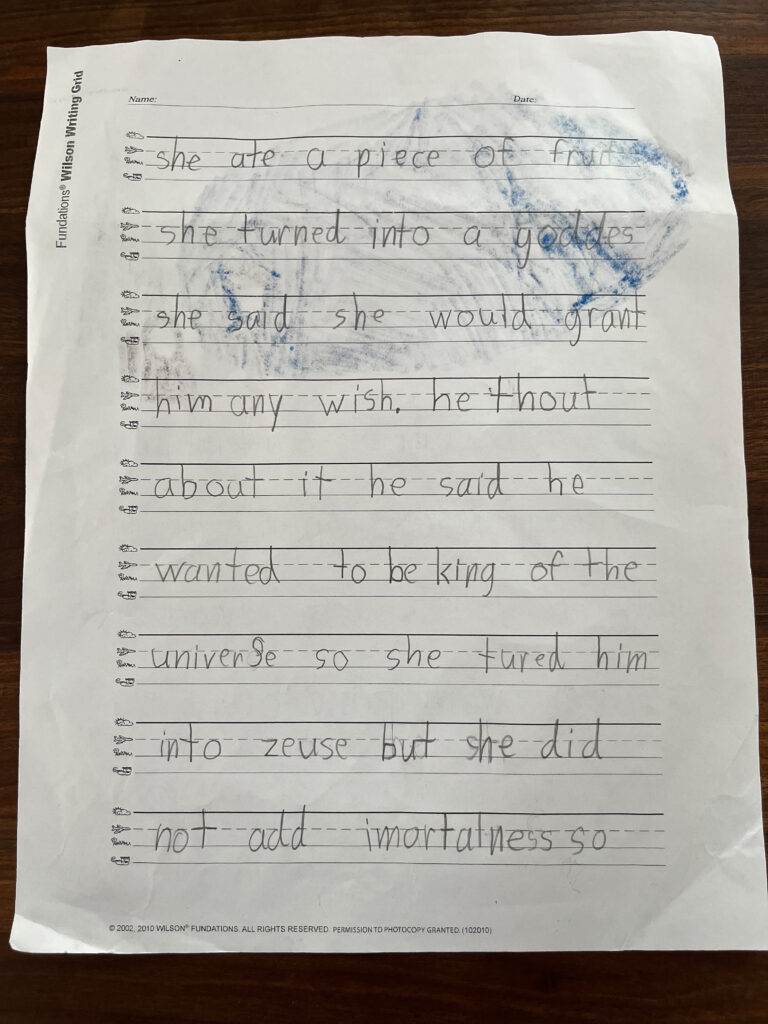 Fundations® Wilson Writing Grid
Name:
Date:
she ate a piece of fruit
she turned into a goddes
she said she would grant
him any wish. he thout
about it he said he
wanted to be king of the
universe so she tured him
into zeuse but she did
not add imortalness so
© 2002, 2010 WILSON® FUNDATIONS. ALL RIGHTS RESERVED. PERMISSION TO PHOTOCOPY GRANTED. (102010)